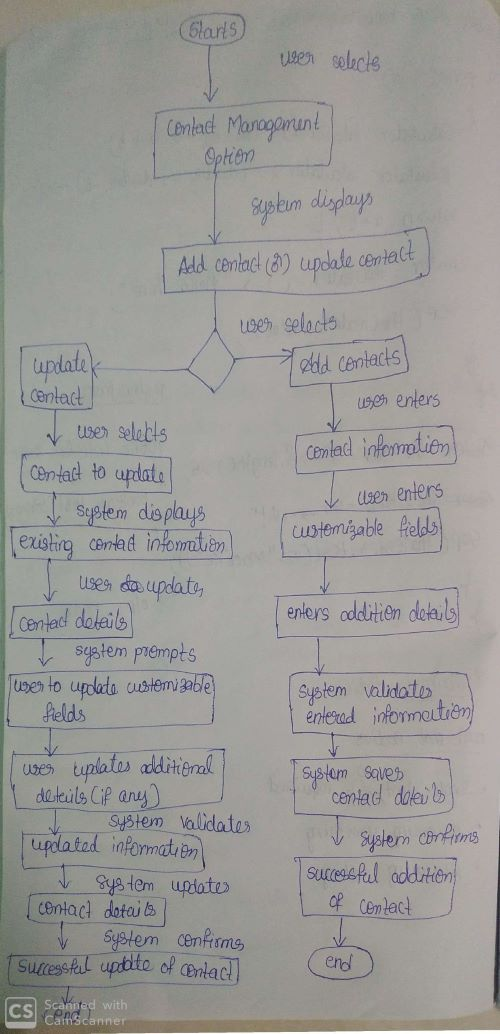 Starts
user selects
Contact Management
Option
system displays
Add contact (or) update contact
user selects
update
contact
user selects
contact to update
system displays
existing contact information
user updates
contact details
system prompts
user to update customizable
fields
user updates additional
details (if any)
system validates
updated information
system updates
contact details
system confirms
successful update of contact
end
Add contacts
user enters
contact information
user enters
customizable fields
enters addition details
system validates
entered information
system saves
contact details
system confirms
successful addition
of contact
end
CS Scanned with
CamScanner